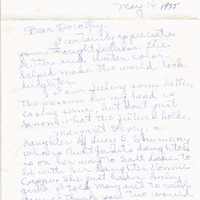 May 16 1975
Dear Dorothy,
I certainly appreciate
your thoughtfulness. The
letter and water color
helped make the world look
brighter.
I am feeling some better,
the pressure in my head is
easing some, but don't just
know what the future holds.
Margaret
daughter of Lucy S.
who is Aunt daughter
is on her way to Salt Lake to
be with her daughter Connie
She just had
I told Margaret to
thank you Two would